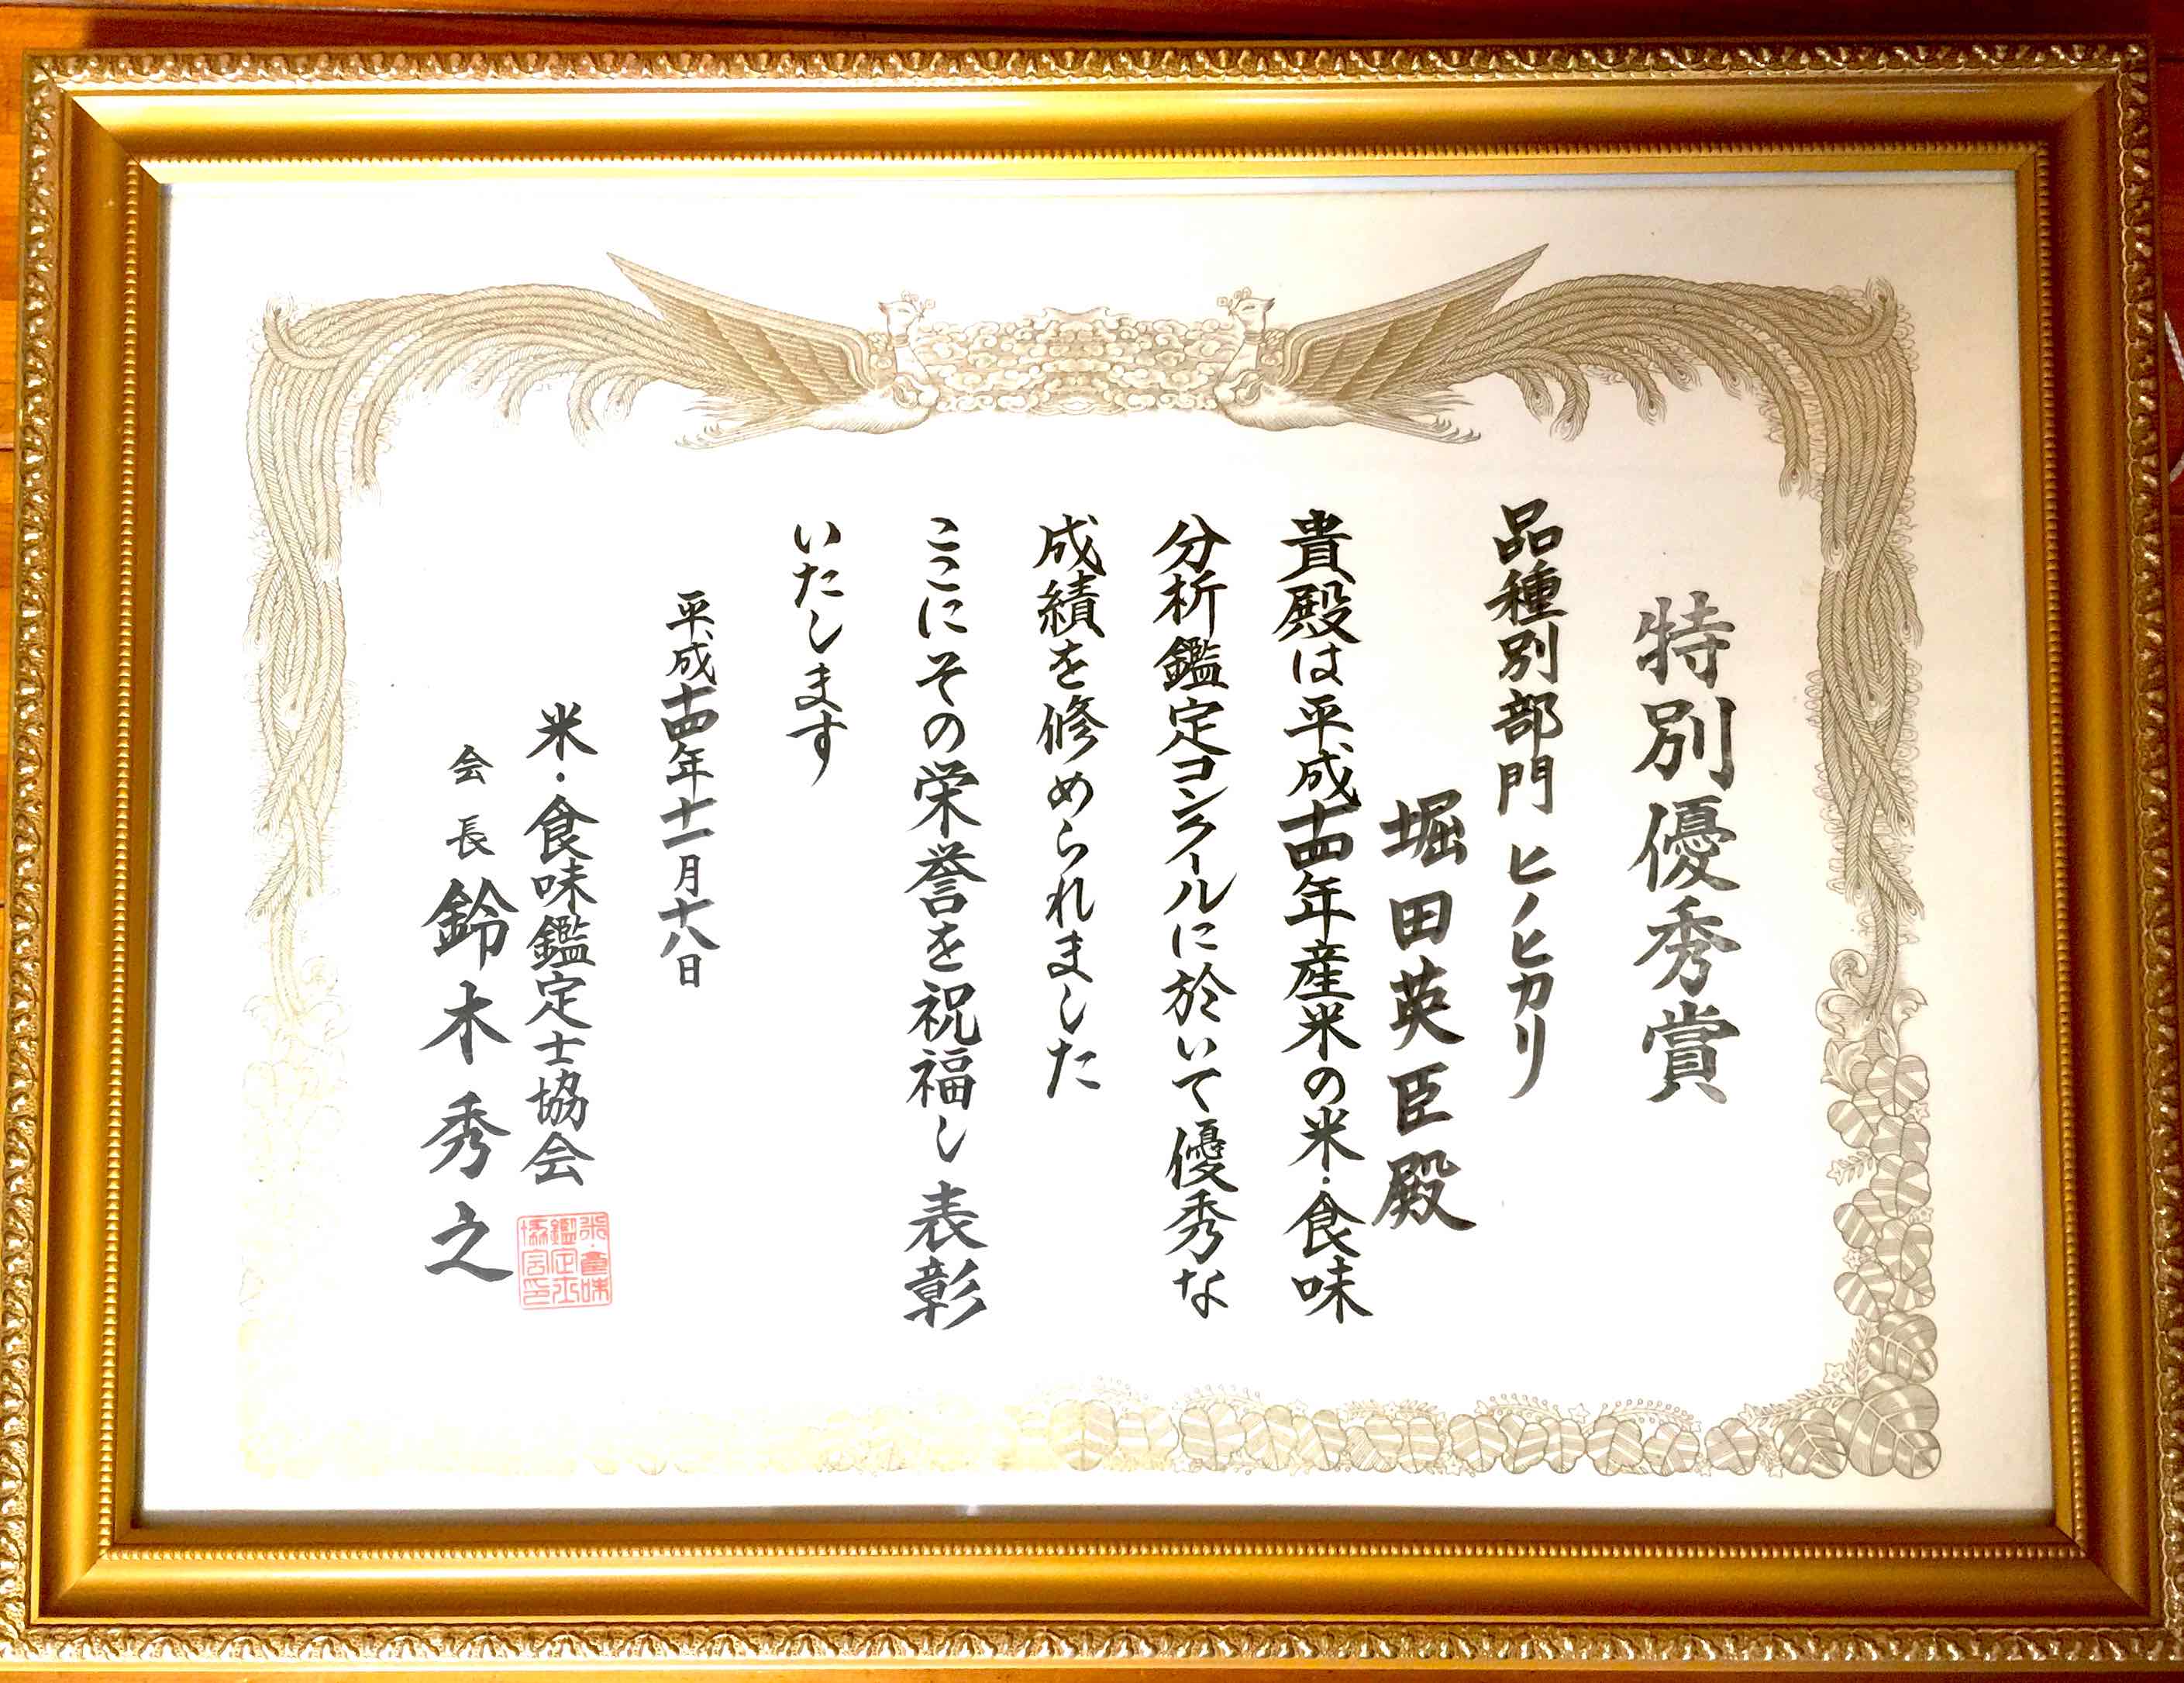 特別優秀賞
品種別部門 ヒノヒカリ
堀田英臣殿
貴殿は平成十四年産米の米・食味
分析鑑定コンクールに於いて優秀な
成績を修められました
ここにその栄誉を祝福し表彰
いたします
平成十四年十一月十八日
米・食味鑑定士協会
会長 鈴木秀之
米・食味
鑑定士
協会印